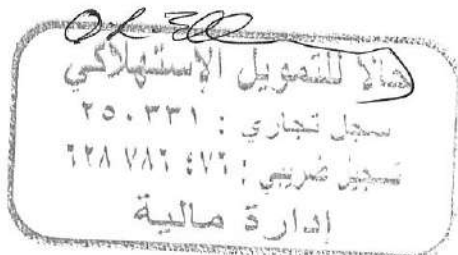 هالا للتمويل الإستهلاكي
سجل تجاري : ٢٥٠٣٣١
تسجيل ضريبي : ٦٢٨ ٧٨٦ ٤٧٦
إدارة مالية